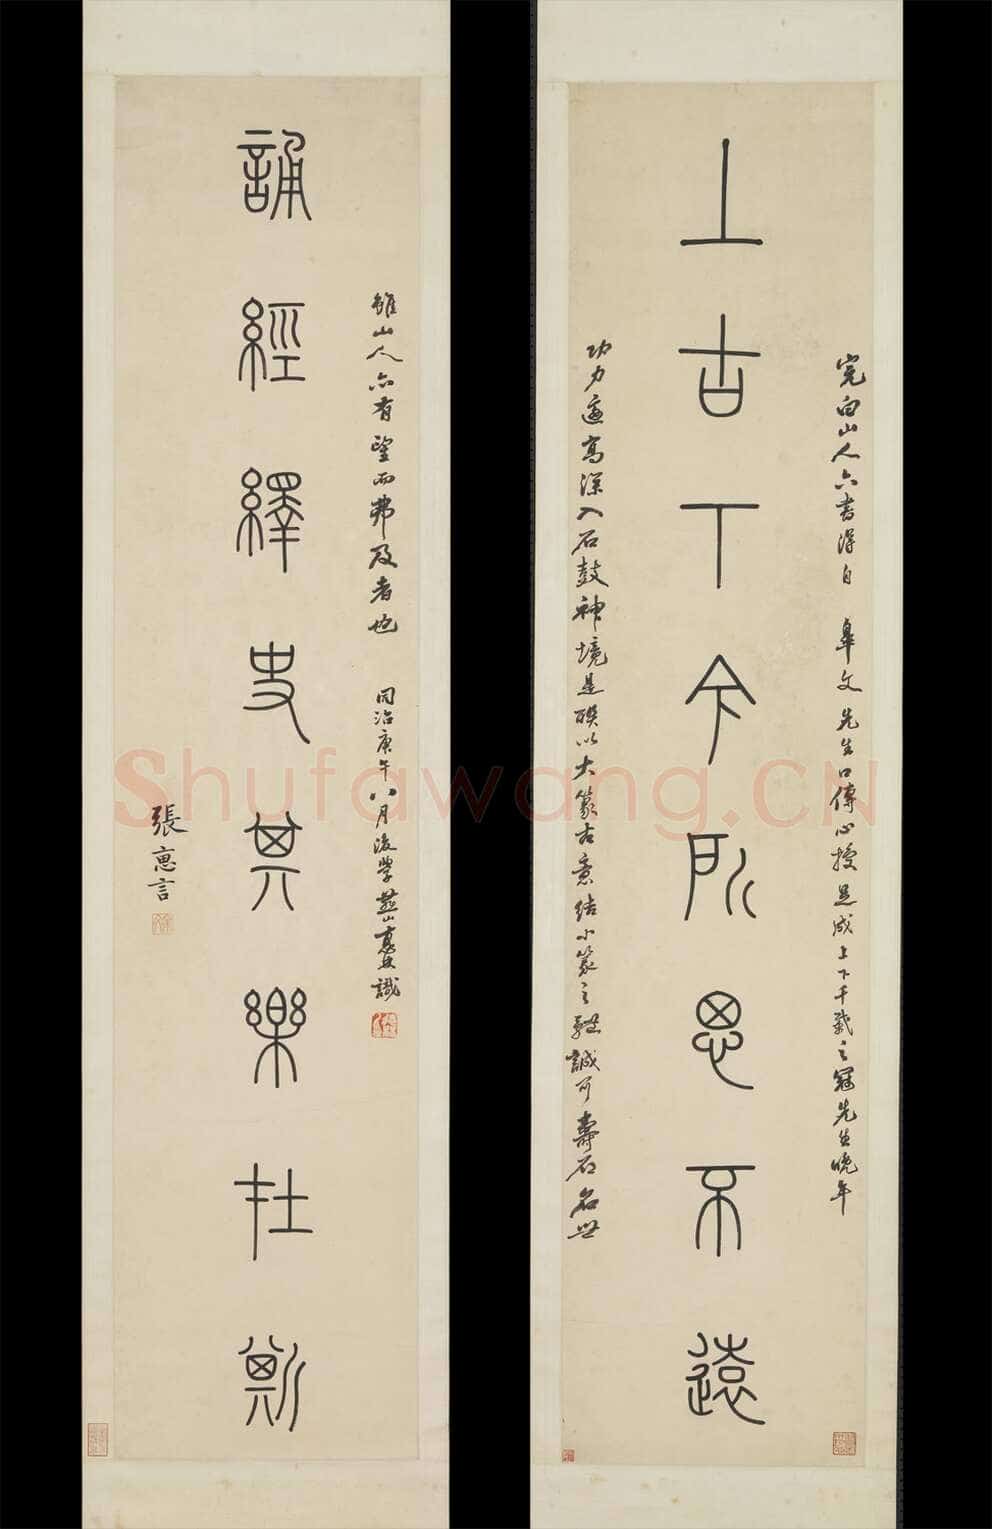 完白山人六書得自 皋文先生口傳心授 成上下千載之冠先生晚年
上古下今所思不遠
功力 高深入石鼓神境是聯以大篆古意結小篆之體誠可壽石名世
雖山人亦有望而弗及者也 同治庚午八月後學 山 識
誦經繹史其樂在斯
張惠言
Shufawang.CN